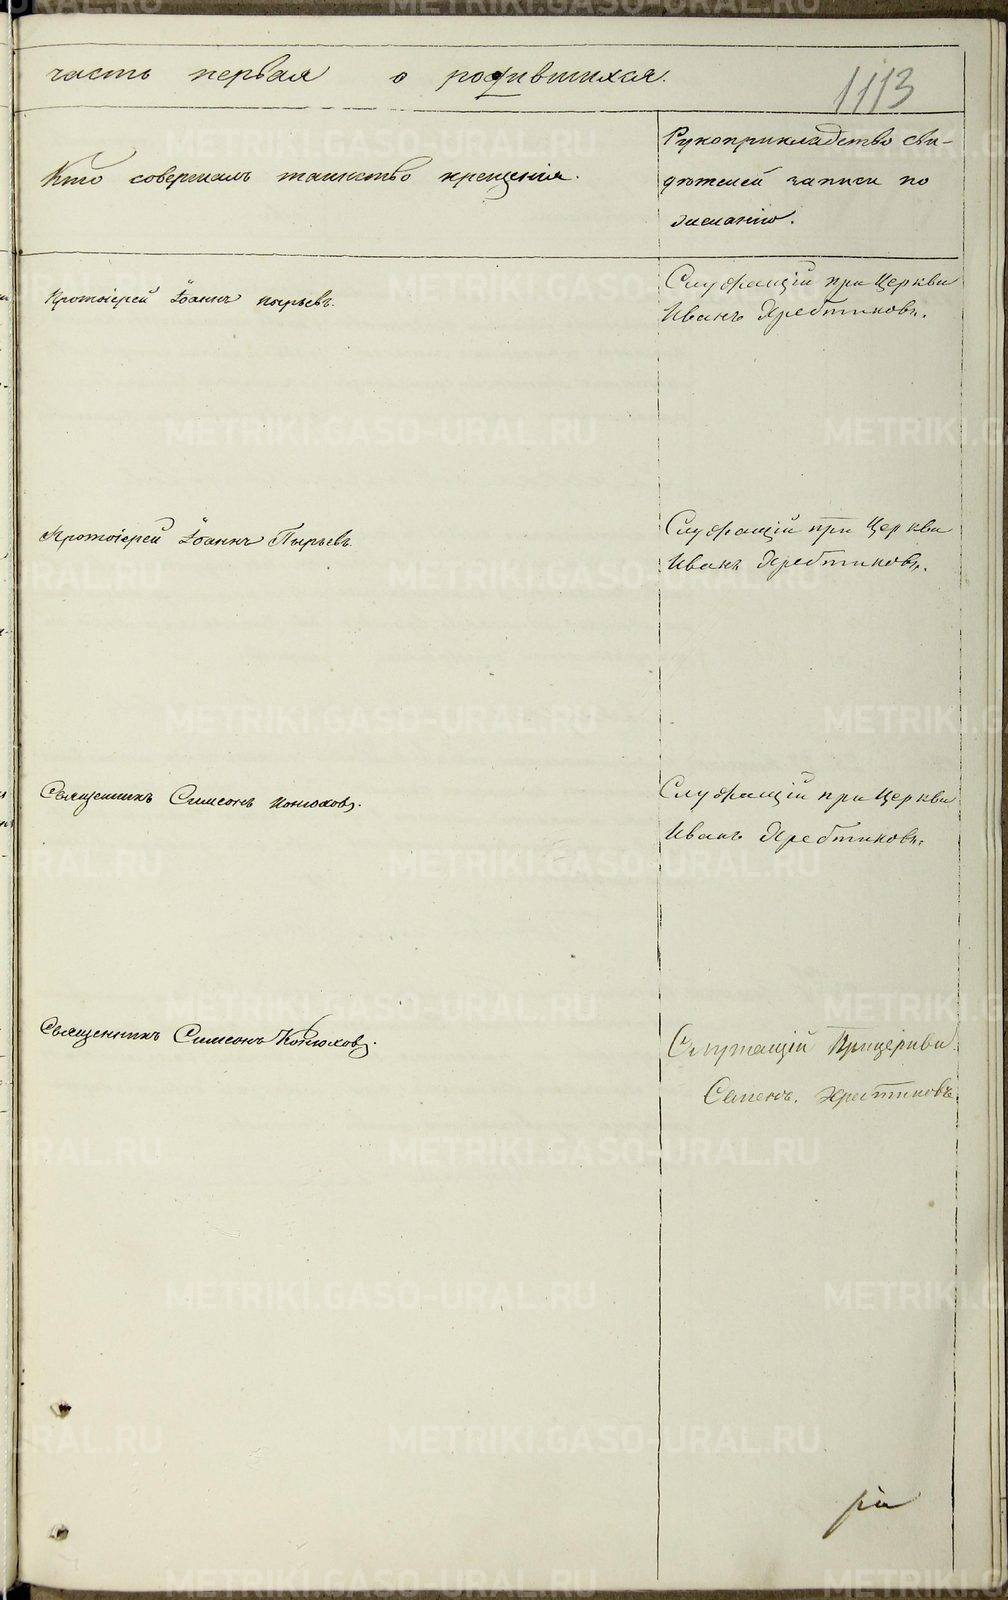 часть первая о родившихся.
1113
Кто совершалъ таинство крещенія.
Рукоприкладство сви-
дѣтелей записи по
желанію.
Протоіерей Іоаннъ Пырьевъ.
Служащій при Церкви
Иванъ Хребтиковъ.
Протоіерей Іоаннъ Пырьевъ.
Служащій при Церкви
Иванъ Хребтиковъ.
Священникъ Симеонъ Конюховъ.
Служащій при Церкви
Иванъ Хребтиковъ.
Священникъ Симеонъ Конюховъ.
Служащій Прицеркви
Семенъ. Хребтиковъ.
METRIKI.GASO-URAL.RU